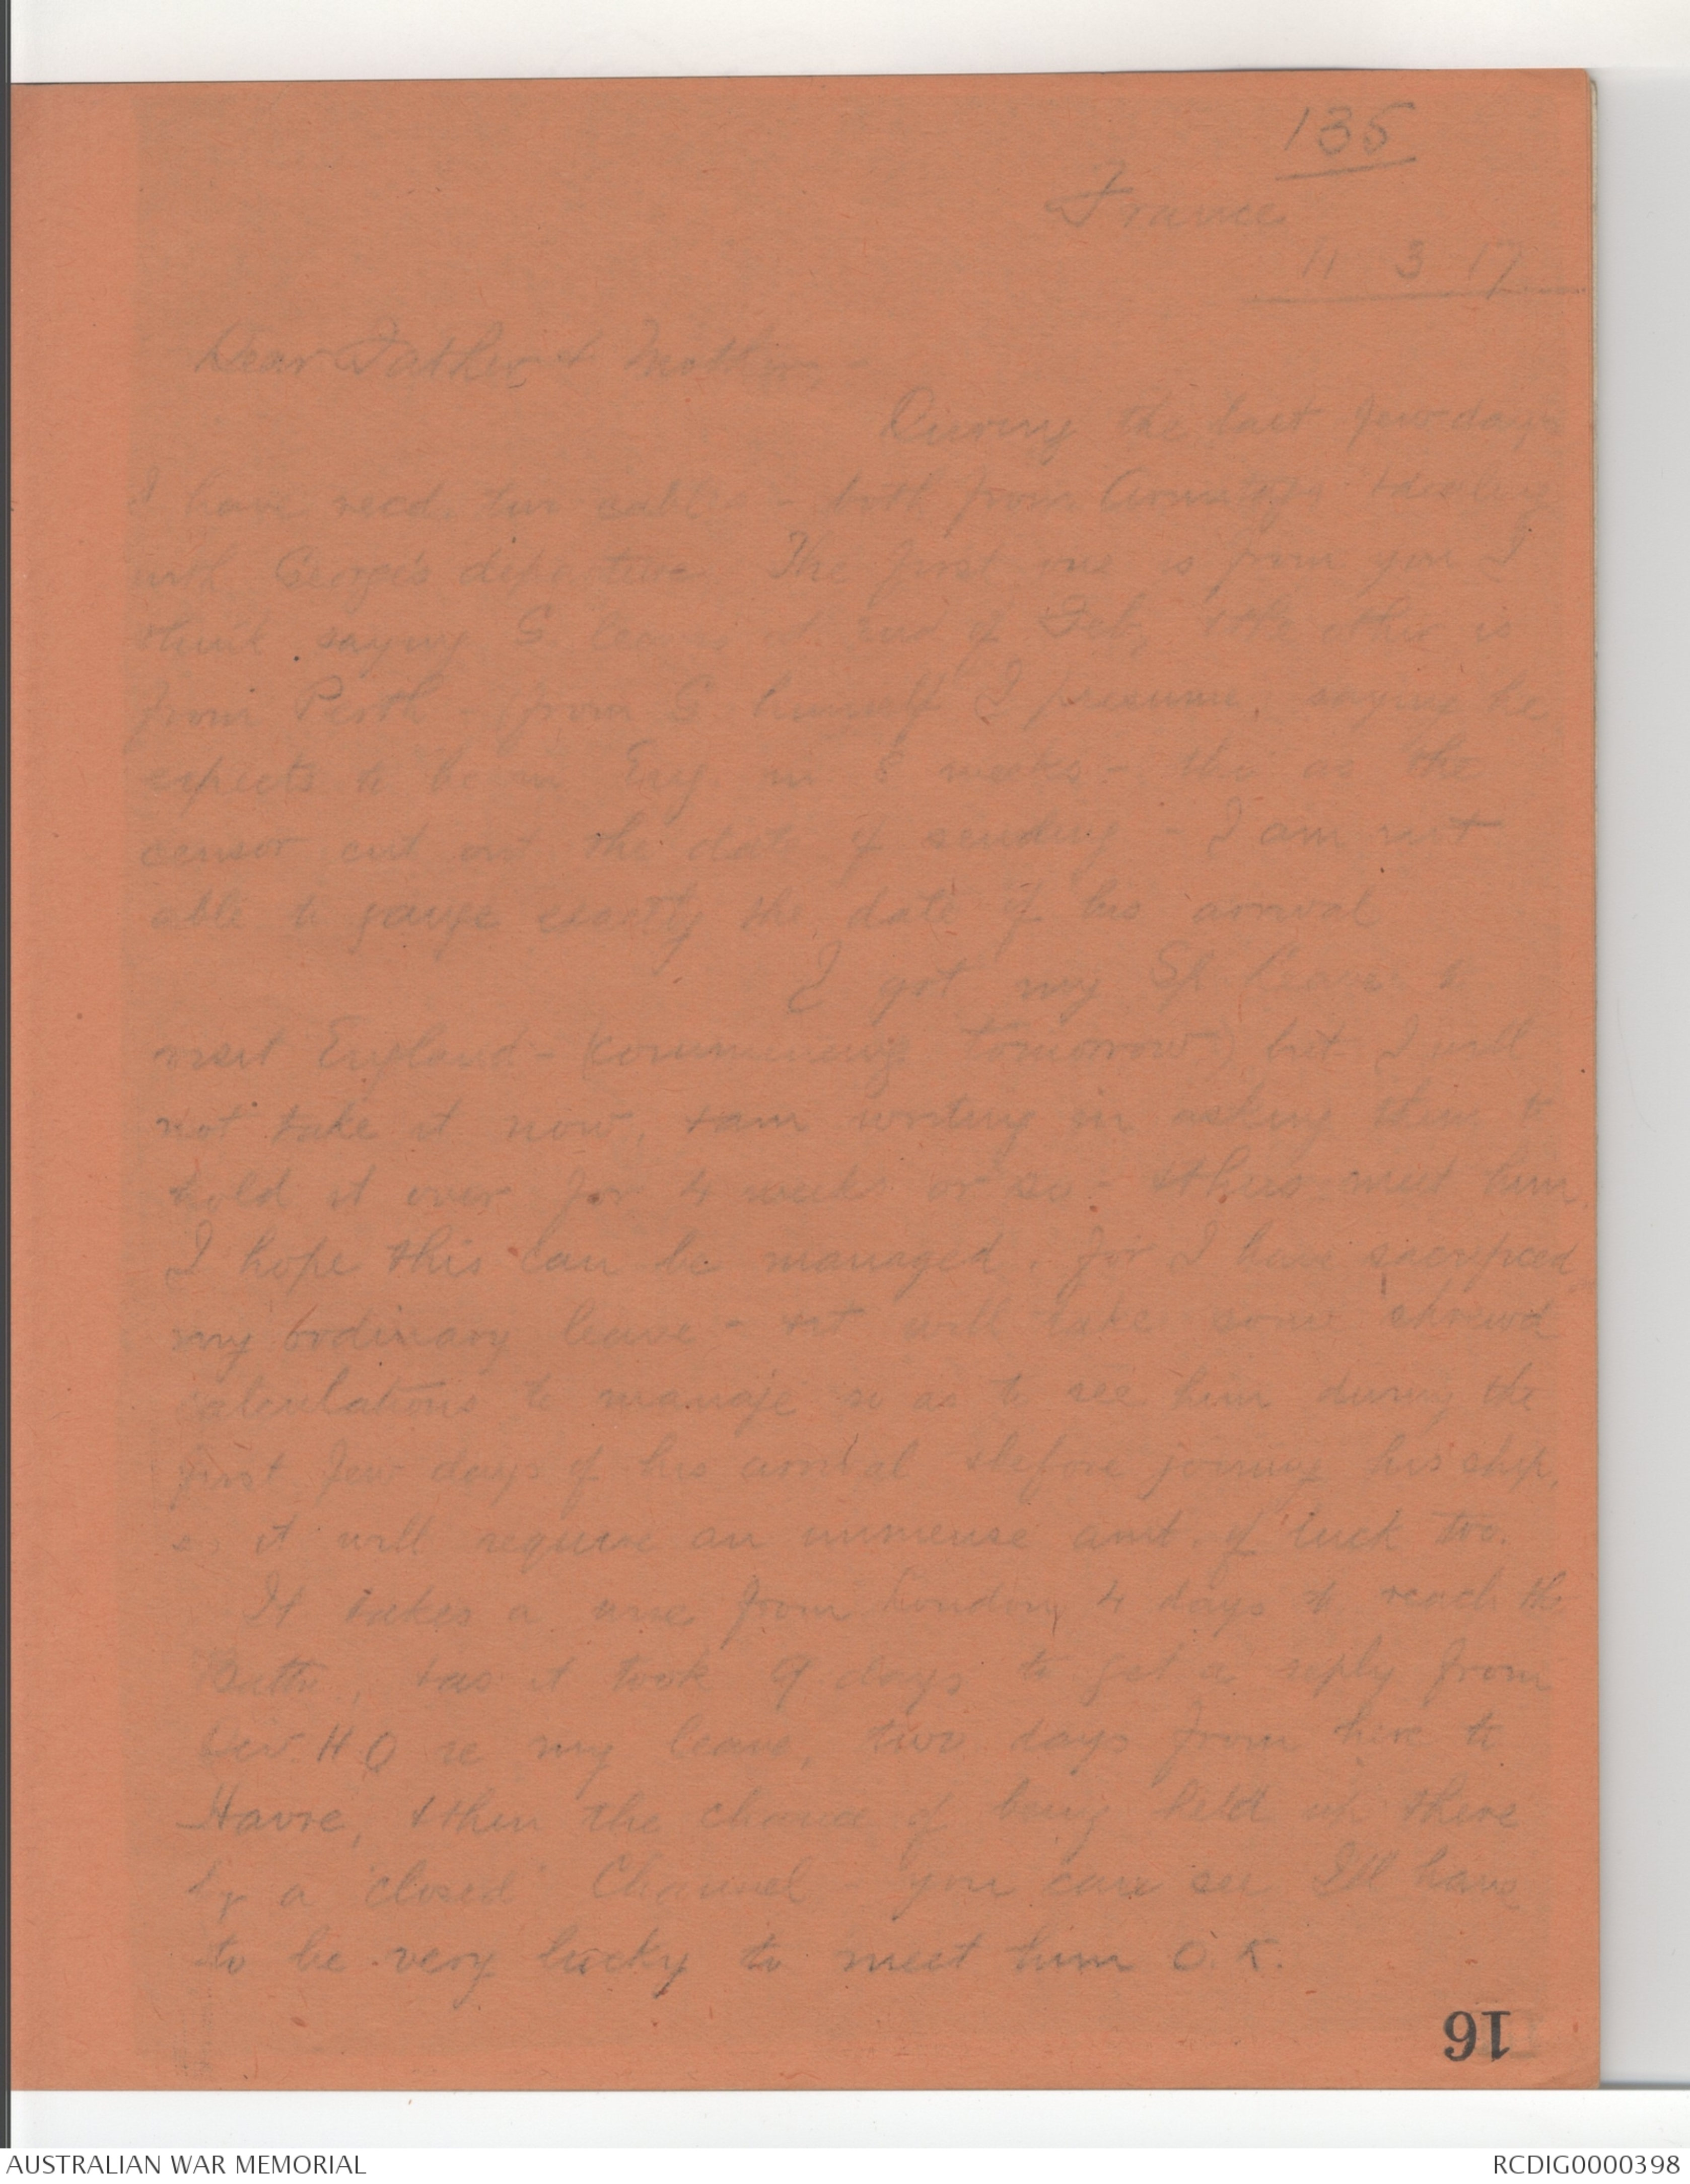 135
France
11 3 17
Dear Father & Mother, -
During the last few days
I have recd. two cables - both from & dealing
with George's departure The first one is from you I
think saying G. leaves at end of Feb, & the other is
from Perth - (from G. himself I presume, saying he
expects to be in Eng in 8 weeks - tho as the
censor cut out the date of sending - I am not
able to gauge exactly the date of his arrival
I got my Spl leave to
visit England - (commencing tomorrow) but I will
not take it now, & am writing in asking them to
hold it over for 4 weeks or so - & thus meet him.
I hope this can be managed, for I have sacrificed
my ordinary leave - & it will take some shrewd
calculations to manage so as to see him during the
first few days of his arrival & before joining his ship,
it will require an immense amt. of luck too.
It takes a wire from London 4 days to reach the
Battn, & as it took 9 days to get a reply from
Div. H Q re my leave, two days from here to
Havre, & then the chance of being held up there
by a 'closed' Channel - you can see I'll have
to be very lucky to meet him O.K.
16
AUSTRALIAN WAR MEMORIAL
RCDIG0000398